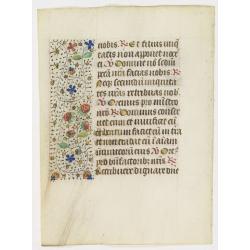 nobis. Et filius iniq
tatis non apponet noce
Domine nō scdm
pctā nrā facias nobis.
Neqz secundū iniquita
tes nrās retribuas nob
Oremus pro
Dominus conser
uet eum et uiuificet eū
et beatum faciet eū in tra
et non tradat eū in aiām
inimicorū eius
pro bnfactoribus nr̄is
Retribuere dignare dnē